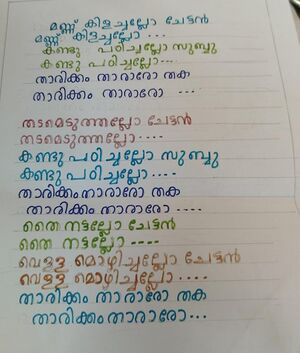 മണ്ണ് കിളച്ചല്ലോ ചേട്ടൻ
മണ്ണ് കിളച്ചല്ലോ ...
കണ്ടു പഠിച്ചല്ലോ സുബ്ബു
കണ്ടു പഠിച്ചല്ലോ....
താരികം താരാരോ തക
താരികം താരാരോ ....
തടമെടുത്തല്ലോ ചേട്ടൻ
തടമെടുത്തല്ലോ ....
കണ്ടു പഠിച്ചല്ലോ സുബ്ബു
കണ്ടു പഠിച്ചല്ലോ ....
താരികം താരാരോ തക
താരികം താരാരോ ....
തൈ നട്ടല്ലോ ചേട്ടൻ
തൈ നട്ടല്ലോ ....
വെള്ള മൊഴിച്ചല്ലോ ചേട്ടൻ
വെള്ള മൊഴിച്ചല്ലോ ....
താരികം താരാരോ തക
താരികം താരാരോ...